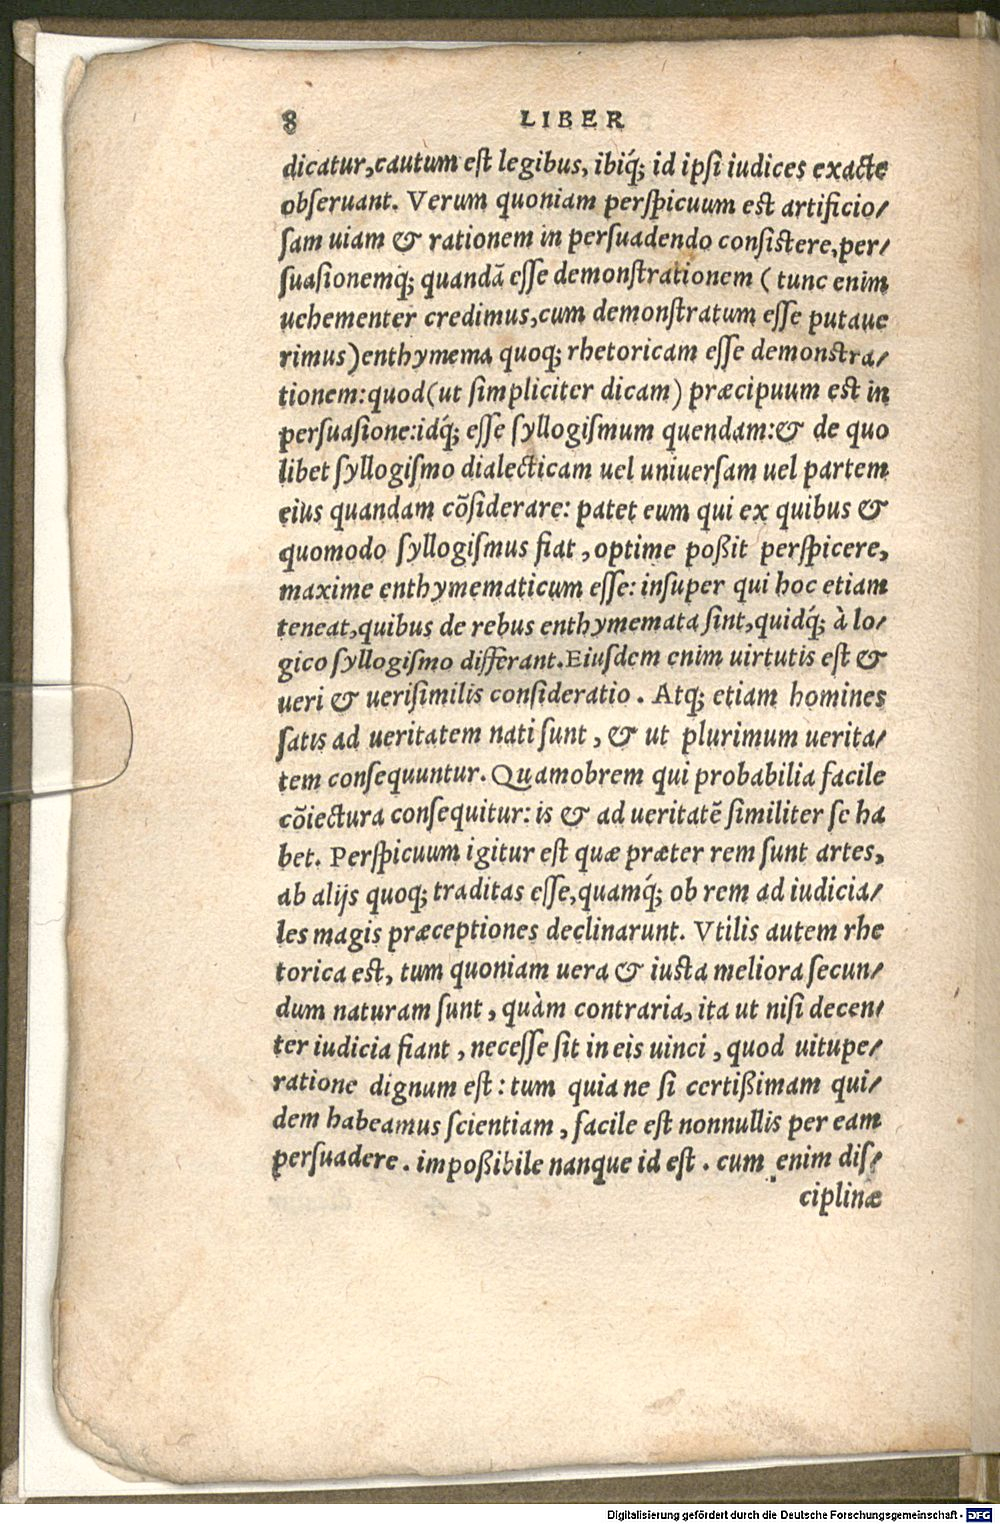 8 LIBER
dicatur,cautum est legibus, ibiq́; id ipsi iudices exacte
obseruant. Verum quoniam perspicuum est artificio/
sam uiam & rationem in persuadendo consistere,per/
suasionemq́; quandã esse demonstrationem ( tunc enim
uehementer credimus,cum demonstratum esse putaue
rimus)enthymema quoq; rhetoricam esse demonstra/
tionem:quod(ut simpliciter dicam) præcipuum est in
persuasione:idq́; esse syllogismum quendam:& de quo
libet syllogismo dialecticam uel uniuersam uel partem
eius quandam cõsiderare: patet eum qui ex quibus &
quomodo syllogismus fiat , optime poßit perspicere,
maxime enthymematicum esse: insuper qui hoc etiam
teneat,quibus de rebus enthymemata sint,quidq́; à lo/
gico syllogismo differant.Eiusdem enim uirtutis est &
ueri & uerisimilis consideratio . Atq; etiam homines
satis ad ueritatem nati sunt , & ut plurimum uerita/
tem consequuntur. Quamobrem qui probabilia facile
cõiectura consequitur: is & ad ueritatẽ similiter se ha
bet. Perspicuum igitur est quæ præter rem sunt artes,
ab alijs quoq; traditas esse,quamq́; ob rem ad iudicia/
les magis præceptiones declinarunt. Vtilis autem rhe
torica est, tum quoniam uera & iusta meliora secun/
dum naturam sunt , quàm contraria, ita ut nisi decen/
ter iudicia fiant , necesse sit in eis uinci , quod uitupe/
ratione dignum est : tum quia ne si certißimam qui/
dem habeamus scientiam , facile est nonnullis per eam
persuadere . impoßibile nanque id est . cum enim dis/
ciplinæ
Digitalisierung gefördert durch die Deutsche Forschungsgemeinschaft - DFG